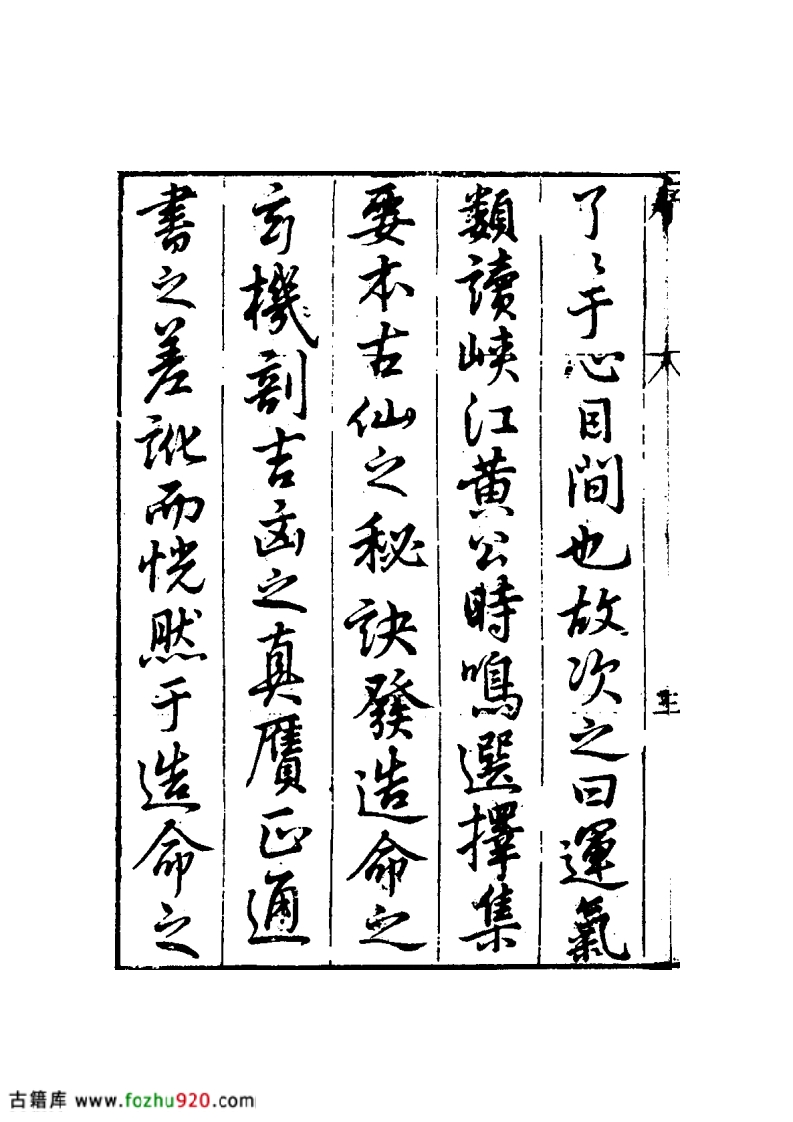 了〻于心目間也故次之曰運氣
類讀峽江黃公時鳴選擇集
要本古仙之秘訣發造命之
玄機剖吉凶之真贋正通
書之差訛而恍然于造命之
序
古籍库 www.fozhu920.com